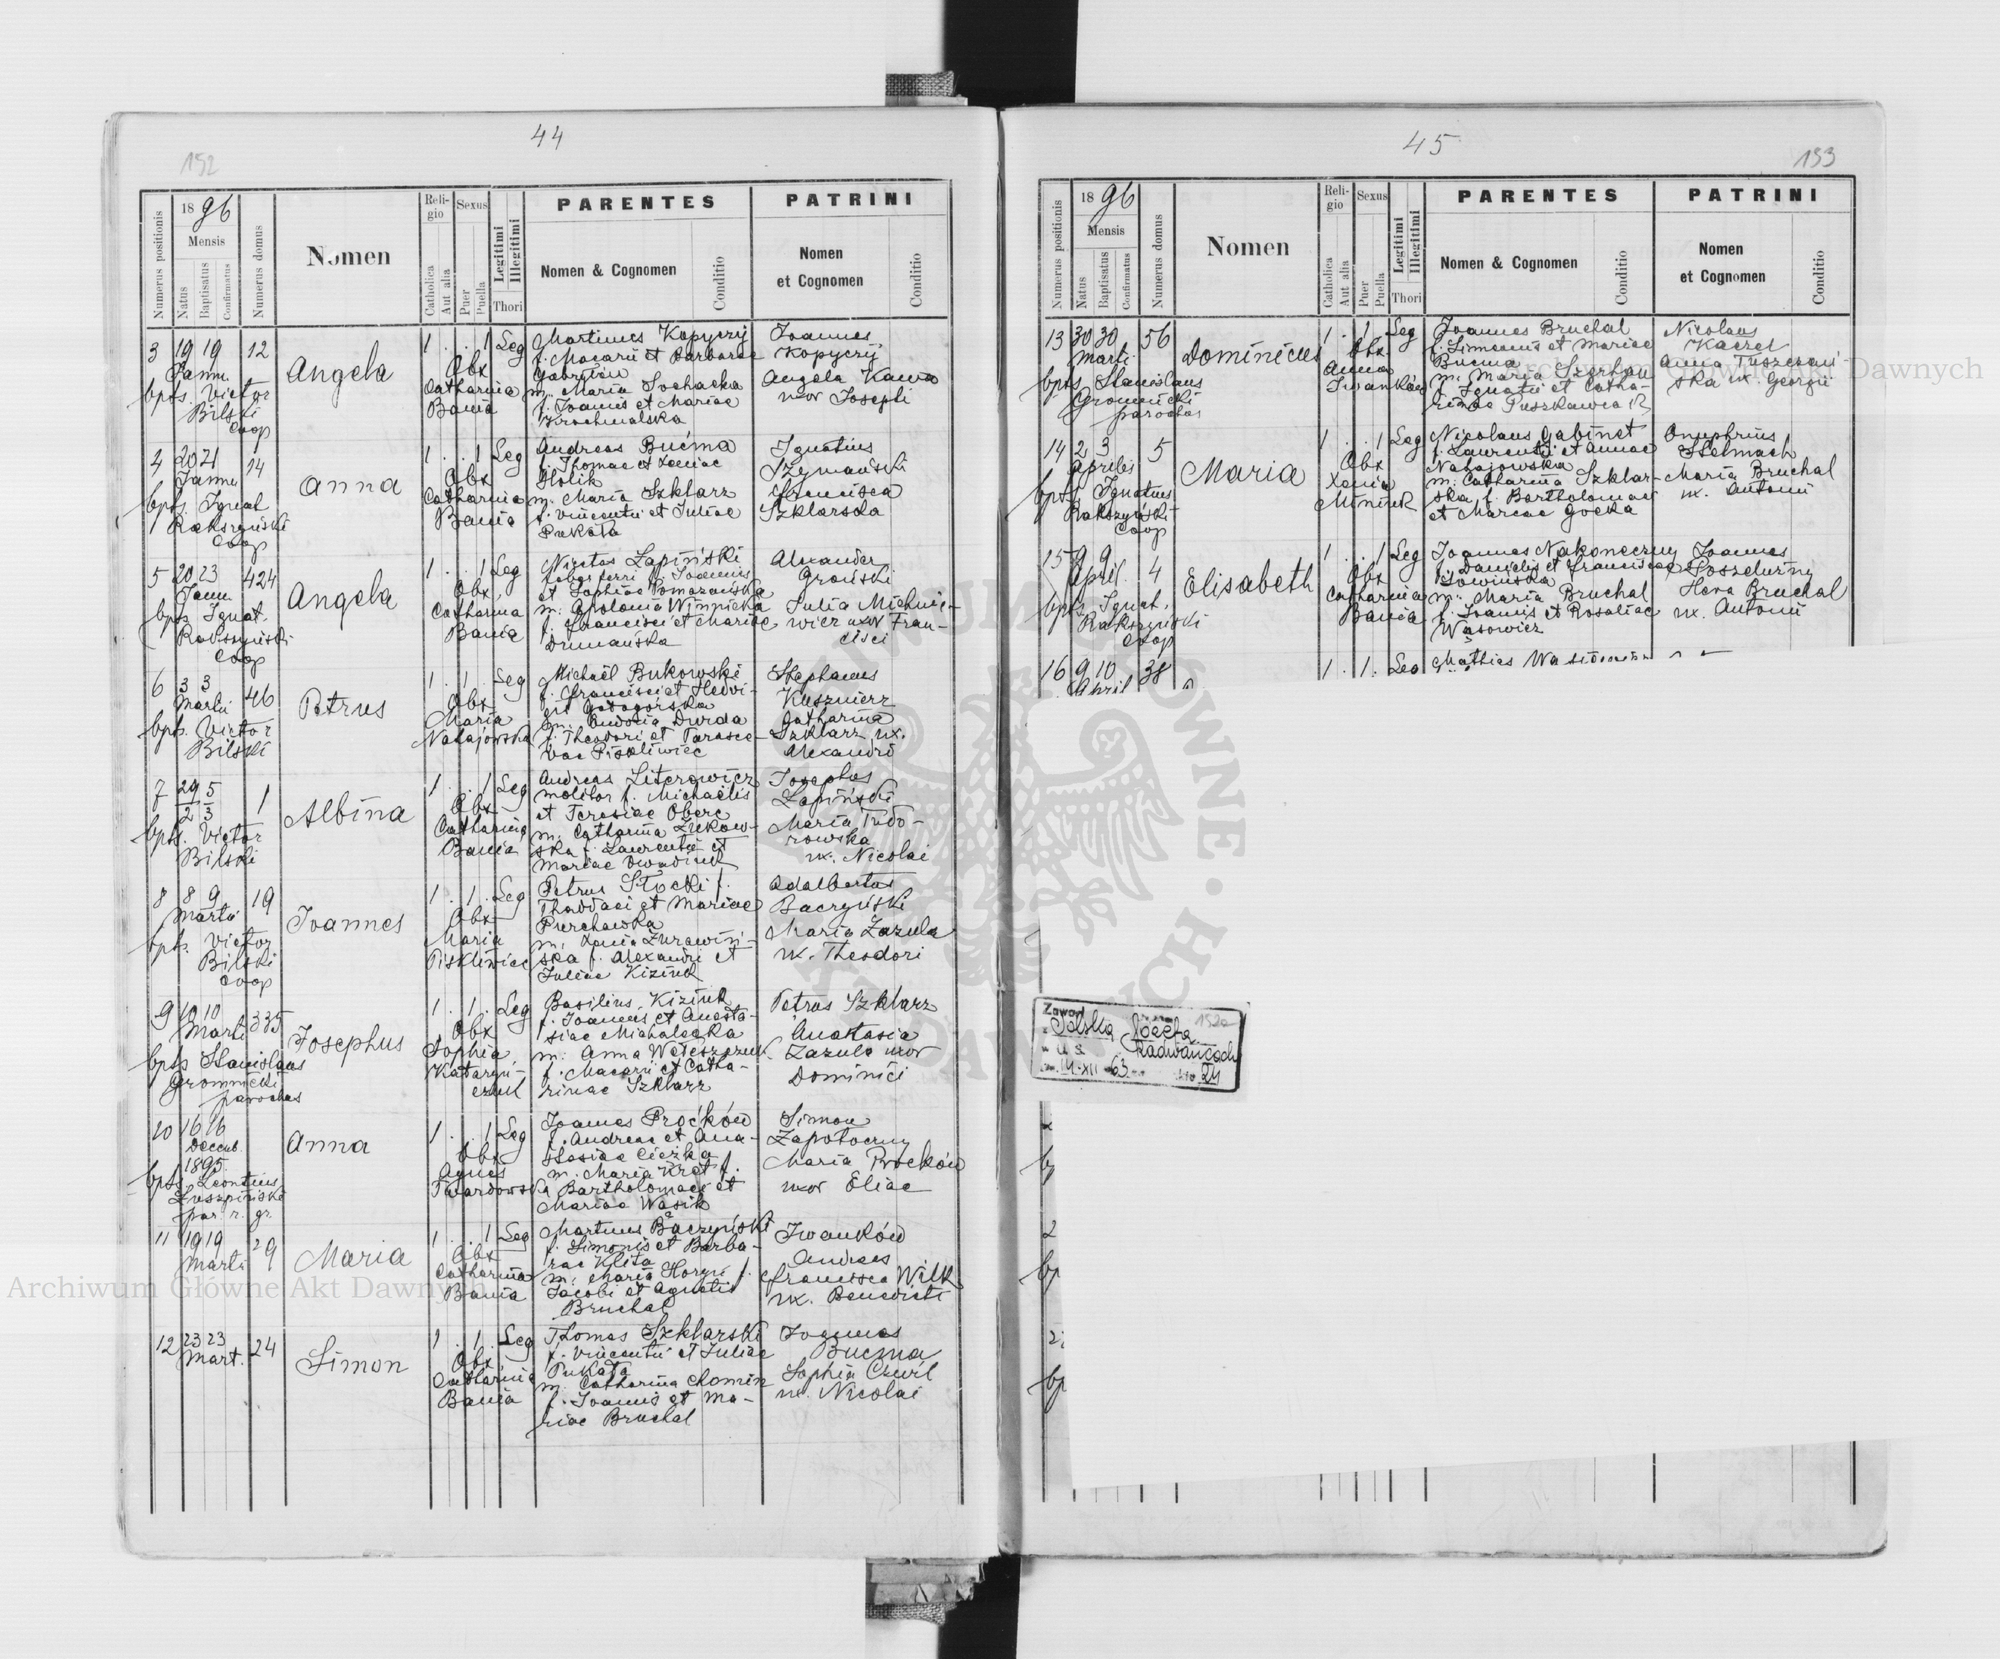 44
152
Numerus positionis
1896
Mensis
Natus
Baptisatus
Confirmatus
Numerus domus
Nomen
Religio
Catholica
Aut alia
Sexus
Puer
Puella
Legitimi
Illegitimi
Thori
PARENTES
Nomen & Cognomen
Conditio
PATRINI
Nomen
et Cognomen
Conditio
3 19 19 12 Angela 1 . . 1 Leg
Janu.
bpts. Victor
Bilski
Coop
Obx
Catharina
Bania
Martinus Kopyczy
f. Macarii et Barbarae
m. Maria Sochacka
f. Joannis et Mariae
Krochmalska
Joannes
Kopyczy
Angela Kawa
uxor Josephi
4 20 21 14 Anna 1 . . 1 Leg
Janu
bpts. Ignat
Rakszyński
Coop
Obx
Catharina
Bania
Andreas Bucma
f. Thomae et Xeniae
Holik
m. Maria Szklarz
f. Vincentii et Juliae
Pukała
Ignatius
Szymański
Francisca
Szklarska
5 20 23 424 Angela 1 . . 1 Leg
Janu.
bpts. Ignat.
Rakszyński
Coop
Obx
Catharina
Bania
Nicetas Łapiński
faber ferri f. Joannis
et Sophiae Pomazańska
m. Apolonia Winnicka
f. Francisci et Mariae
Dumańska
Alexander
Groński
Julia Michnie-
wicz uxor Fran-
cisci
6 3 3 46 Petrus 1 . 1 . Leg
Martii
bpts. Victor
Bilski
Obx
Maria
Nahajowska
Michaël Bukowski
f. Francisci et Hedvi-
gis
m. Eudocia Durda
f. Theodori et Parasce-
vae Piskliwiec
Stephanus
Kusznierz
Catharina
Szklarz ux.
Alexandri
7 29/2 5/3 1 Albina 1 . . 1 Leg
bpts. Victor
Bilski
Obx
Catharina
Bania
Andreas Literowicz
molitor f. Michaëlis
et Teresiae Oberc
m. Catharina Żukow-
ska f. Laurentii et
Mariae
Josephus
Łapiński
Maria Tudo-
rowska
ux. Nicolai
8 8 9 19 Joannes 1 . 1 . Leg
Martii
bpts. Victor
Bilski
Coop
Obx
Maria
Piskliwiec
Petrus Stocki f.
Thaddaei et Mariae
m. Xenia Żurawiń-
ska f. Alexandri et
Juliae Kiziuk
Adalbertus
Baczyński
Maria Zazula
ux. Theodori
9 10 10 335 Josephus 1 . 1 . Leg
Marti
bpts Stanislaus
Gromnicki
parochus
Obx
Sophia
Kataryn-
czuk
Basilius Kiziuk
f. Joannis et Anasta-
siae Michalska
m. Anna Wołeszczuk
f. Macarii et Catha-
rinae Szklarz
Petrus Szklarz
Anastasia
Zazula uxor
Dominici
10 16 16 Anna 1 . . 1 Leg
Decemb.
1895
bpts Leontius
Łuszpiński
par. r. gr.
Obx
Agnes
Twardowska
Joannes Proćków
f. Andreae et Ana-
stasiae Cieżka
m. Maria Kret f.
Bartholomaei et
Mariae Wąsik
Simon
Zapotoczny
Maria Proćków
uxor Eliae
11 19 19 29 Maria 1 . . 1 Leg
Marti
Obx
Catharina
Bania
Martinus Baczyński
f. Simonis et Barba-
rae Klita
m. Maria Horyń f.
Jacobi et Agnetis
Bruchal
Iwanków
Andreas
Francisca Wilk
ux. Benedicti
12 23 23 24 Simon 1 . 1 . Leg
Mart.
Obx
Catharina
Bania
Thomas Szklarski
f. Vincentii et Juliae
Pukała
m. Catharina Chomin
f. Joannis et Ma-
riae Bruchal
Joannes
Bucma
Sophia Czwil
ux. Nicolai
45
153
Numerus positionis
1896
Mensis
Natus
Baptisatus
Confirmatus
Numerus domus
Nomen
Religio
Catholica
Aut alia
Sexus
Puer
Puella
Legitimi
Illegitimi
Thori
PARENTES
Nomen & Cognomen
Conditio
PATRINI
Nomen
et Cognomen
Conditio
13 30 30 56 Dominicus 1 . 1 . Leg
Marti.
bpts. Stanislaus
Gromnicki
parochus
Obx
Anna
Iwanków
Joannes Bruchal
f. Simeonis et Mariae
Bucma
m. Maria Szerhan
f. Ignatii et Catha-
rinae
Nicolaus
Kaczel
Anna
ska ux. Georgii
14 2 3 5 Maria 1 . . 1 Leg
Aprilis
bpts. Ignatius
Rakszyński
Coop
Obx
Xenia
Miniuk
Nicolaus Gabinet
f. Laurentii et Annae
Nahajowska
m. Catharina Szklar-
ska f. Bartholomaei
et Mariae Gocka
Onuphrius
Stelmach
Maria Bruchal
ux. Antonii
15 9 9 4 Elisabeth 1 . . 1 Leg
April.
bpts. Ignat.
Rakszyński
Coop
Obx
Catharina
Bania
Joannes Nakoneczny
f. Danielis et Franciscae
Sowińska
m. Maria Bruchal
f. Joannis et Rosaliae
Wąsowicz
Joannes
Koszelurny
Hera Bruchal
ux. Antonii
16 9 10 38 1 . 1 . Leg
April
Mathias
Zaświ
Polska
w U.S.
Radwańcach
14.XII 63 Nro 24
Archiwum Główne Akt Dawnych
Archiwum Główne Akt Dawnych